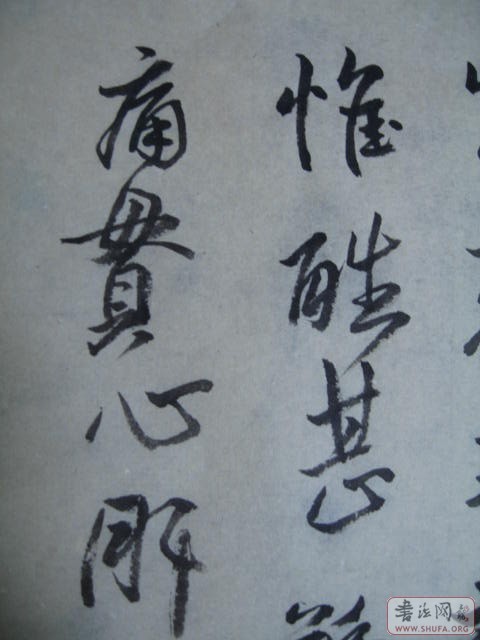 惟酷甚
痛貫心肝
書法网
WWW.SHUFA.ORG